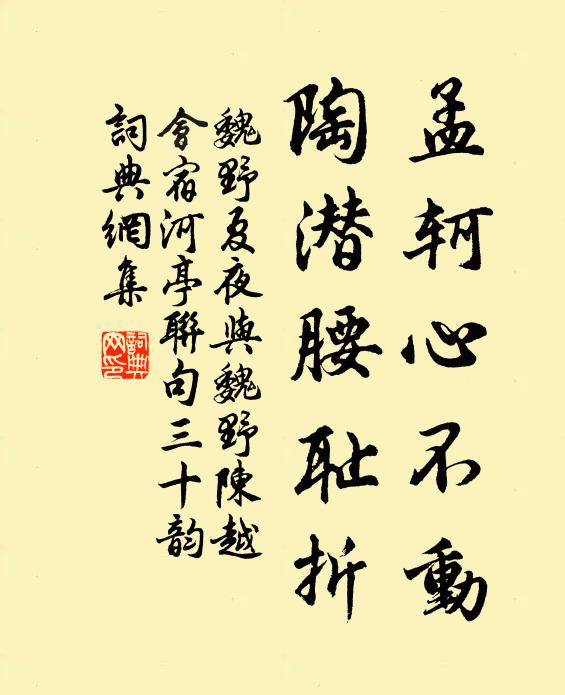 孟轲心不動
陶潜腰耻折
魏野夏夜與魏野陳越
會宿河亭聯句三十韵
詞典網集
詞典
网印